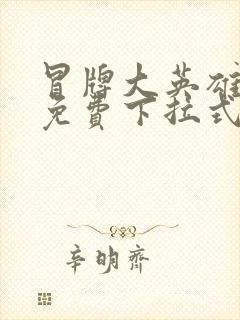 冒牌大英雄
免費下拉式
辛明齊